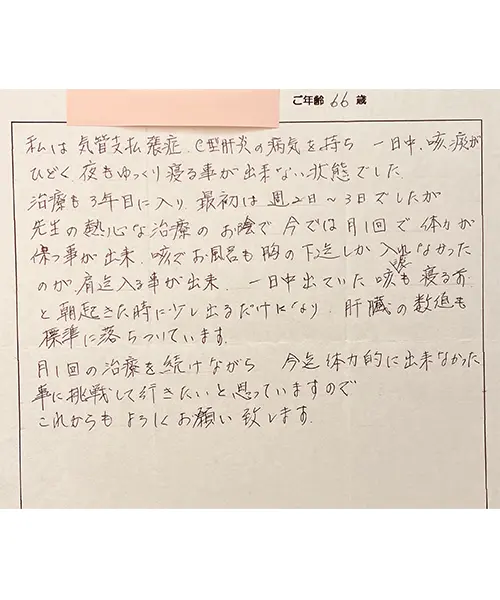 ご年齢 66 歳
私は 気管支拡張症、C型肝炎の病気を持ち 一日中、咳、痰が
ひどく、夜もゆっくり寝る事が出来ない状態でした。
治療も3年目に入り、最初は週2日～3日でしたが
先生の熱心な治療のお陰で今では月1回で体力が
保つ事が出来、咳でお風呂も胸の下迄しか入れなかった
のが肩迄入る事が出来、一日中出ていた咳、痰も寝る前
と朝起きた時に少し出るだけになり、肝臓の数値も
標準に落ちついています。
月1回の治療を続けながら 今迄体力的に出来なかった
事に挑戦して行きたいと思っていますので
これからもよろしくお願い致します。